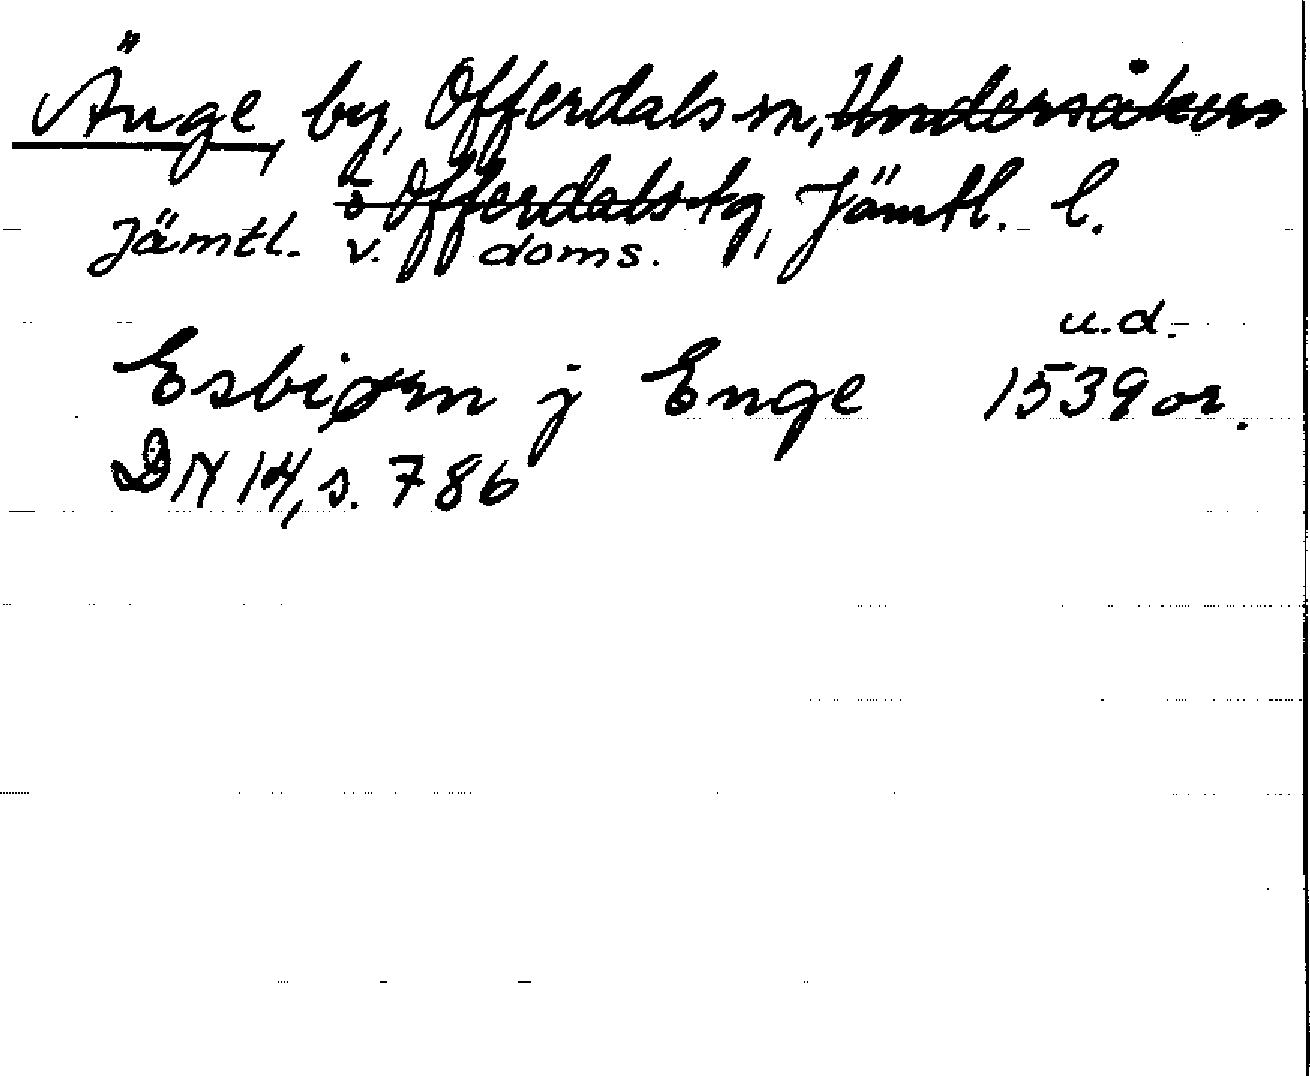 Änge, by, Offerdals sn, Undersåkers
o Offerdals tg, Jämtl. l.
Jämtl. v. doms.
u.d.
Esbiørn j Enge 1539 or.
DN 14, s. 786